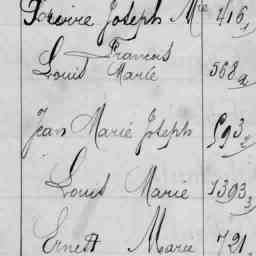 Pierre Joseph Mie 416 1
François
Louis Marie 568 2
Jean Marie Joseph 593 2
Louis Marie 1393 3
Ernest Marie 721